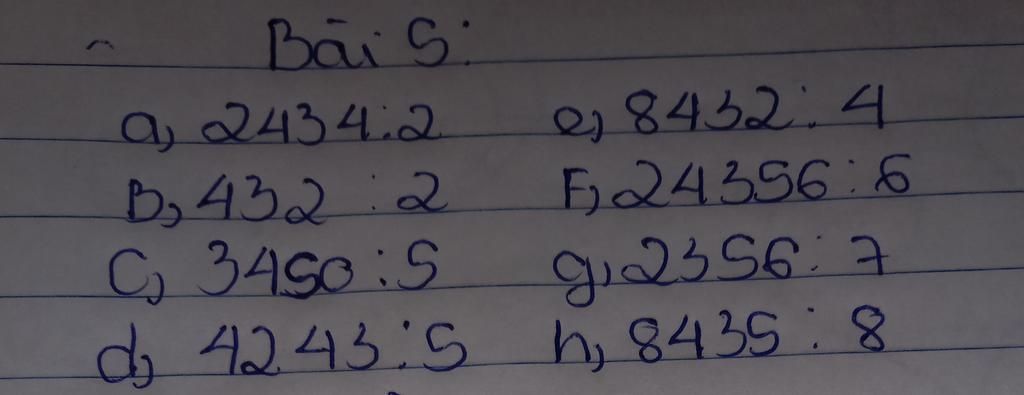 Bài 5:
a, 2434:2 e, 8432: 4
B, 432 : 2 F, 24356 : 6
C, 3450 : 5 g, 2356: 7
d, 4243 : 5 h, 8435 : 8